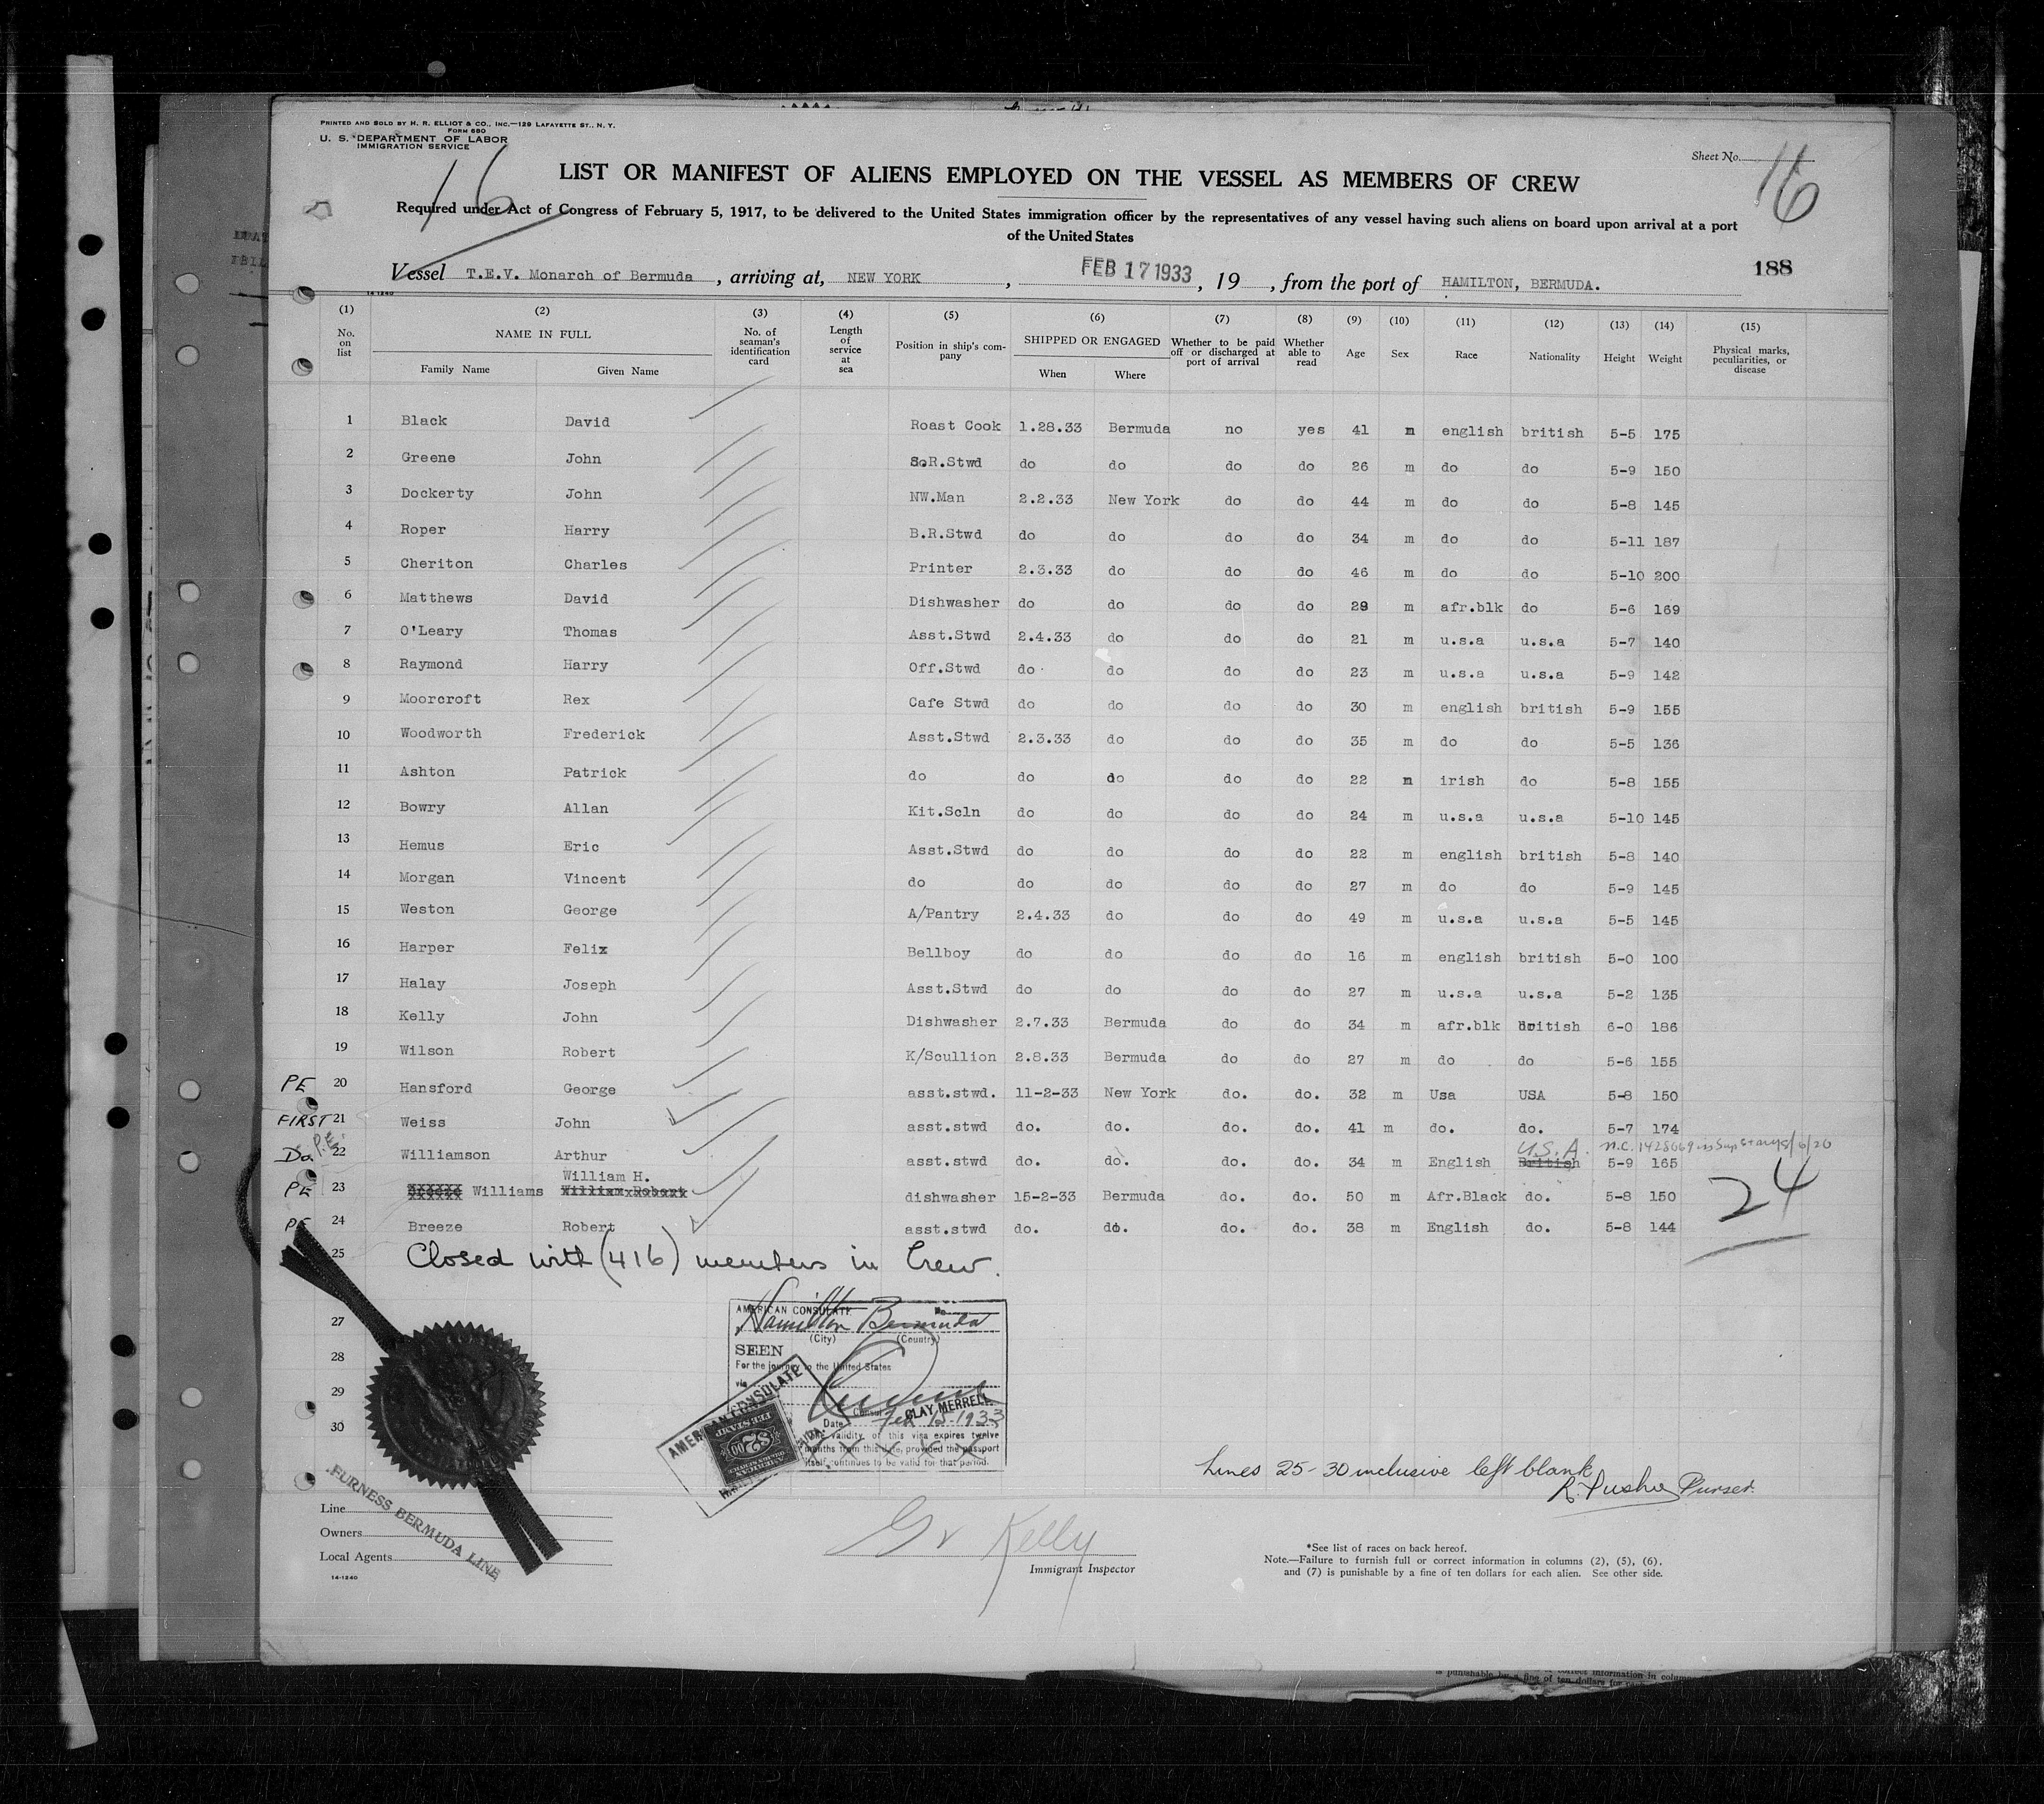 PRINTED AND SOLD BY H. R. ELLIOT & CO., INC.—129 LAFAYETTE ST., N. Y.
FORM 680
U. S. DEPARTMENT OF LABOR
IMMIGRATION SERVICE
16
Sheet No. 16
LIST OR MANIFEST OF ALIENS EMPLOYED ON THE VESSEL AS MEMBERS OF CREW
Required under Act of Congress of February 5, 1917, to be delivered to the United States immigration officer by the representatives of any vessel having such aliens on board upon arrival at a port
of the United States
188
Vessel T.E.V. Monarch of Bermuda, arriving at, NEW YORK, FEB 17 1933, 19 , from the port of HAMILTON, BERMUDA.
14-1240
(1) (2) (3) (4) (5) (6) (7) (8) (9) (10) (11) (12) (13) (14) (15)
No. on list NAME IN FULL Family Name Given Name No. of seaman's identification card Length of service at sea Position in ship's company SHIPPED OR ENGAGED When Where Whether to be paid off or discharged at port of arrival Whether able to read Age Sex Race Nationality Height Weight Physical marks, peculiarities, or disease
1 Black David Roast Cook 1.28.33 Bermuda no yes 41 m english british 5-5 175
2 Greene John S.R.Stwd do do do do 26 m do do 5-9 150
3 Dockerty John NW.Man 2.2.33 New York do do 44 m do do 5-8 145
4 Roper Harry B.R.Stwd do do do do 34 m do do 5-11 187
5 Cheriton Charles Printer 2.3.33 do do do 46 m do do 5-10 200
6 Matthews David Dishwasher do do do do 29 m afr.blk do 5-6 169
7 O'Leary Thomas Asst.Stwd 2.4.33 do do do 21 m u.s.a u.s.a 5-7 140
8 Raymond Harry Off.Stwd do do do do 23 m u.s.a u.s.a 5-9 142
9 Moorcroft Rex Cafe Stwd do do do do 30 m english british 5-9 155
10 Woodworth Frederick Asst.Stwd 2.3.33 do do do 35 m do do 5-5 136
11 Ashton Patrick do do do do do 22 m irish do 5-8 155
12 Bowry Allan Kit.Scln do do do do 24 m u.s.a u.s.a 5-10 145
13 Hemus Eric Asst.Stwd do do do do 22 m english british 5-8 140
14 Morgan Vincent do do do do do 27 m do do 5-9 145
15 Weston George A/Pantry 2.4.33 do do do 49 m u.s.a u.s.a 5-5 145
16 Harper Felix Bellboy do do do do 16 m english british 5-0 100
17 Halay Joseph Asst.Stwd do do do do 27 m u.s.a u.s.a 5-2 135
18 Kelly John Dishwasher 2.7.33 Bermuda do do 34 m afr.blk british 6-0 186
19 Wilson Robert K/Scullion 2.8.33 Bermuda do do 27 m do do 5-6 155
PE 20 Hansford George asst.stwd. 11-2-33 New York do. do. 32 m Usa USA 5-8 150
FIRST 21 Weiss John asst.stwd. do. do. do. do. 41 m do. do. 5-7 174
Do. 22 Williamson Arthur asst.stwd do. do. do. do. 34 m English British U.S.A. 5-9 165 n.c. 1428669
PE 23 Breeze Williams William Robert William H. dishwasher 15-2-33 Bermuda do. do. 50 m Afr.Black do. 5-8 150
24
PE 24 Breeze Robert asst.stwd do. do. do. do. 38 m English do. 5-8 144
25 Closed with (416) members in Crew.
27
28
29
30
AMERICAN CONSULATE No.
Hamilton Bermuda
(City) (Country)
SEEN
For the journey to the United States
via
Consul CLAY MERRELL
Date Feb 15-1933
The validity of this visa expires twelve
months from this date, provided the passport
itself continues to be valid for that period.
AMERICAN CONSULATE
$2.00
FEE STAMP
Lines 25-30 inclusive left blank
R. Pusher Purser.
Line
Owners
Local Agents
14-1240
FURNESS BERMUDA LINE
Kelly
Immigrant Inspector
*See list of races on back hereof.
Note.—Failure to furnish full or correct information in columns (2), (5), (6).
and (7) is punishable by a fine of ten dollars for each alien. See other side.